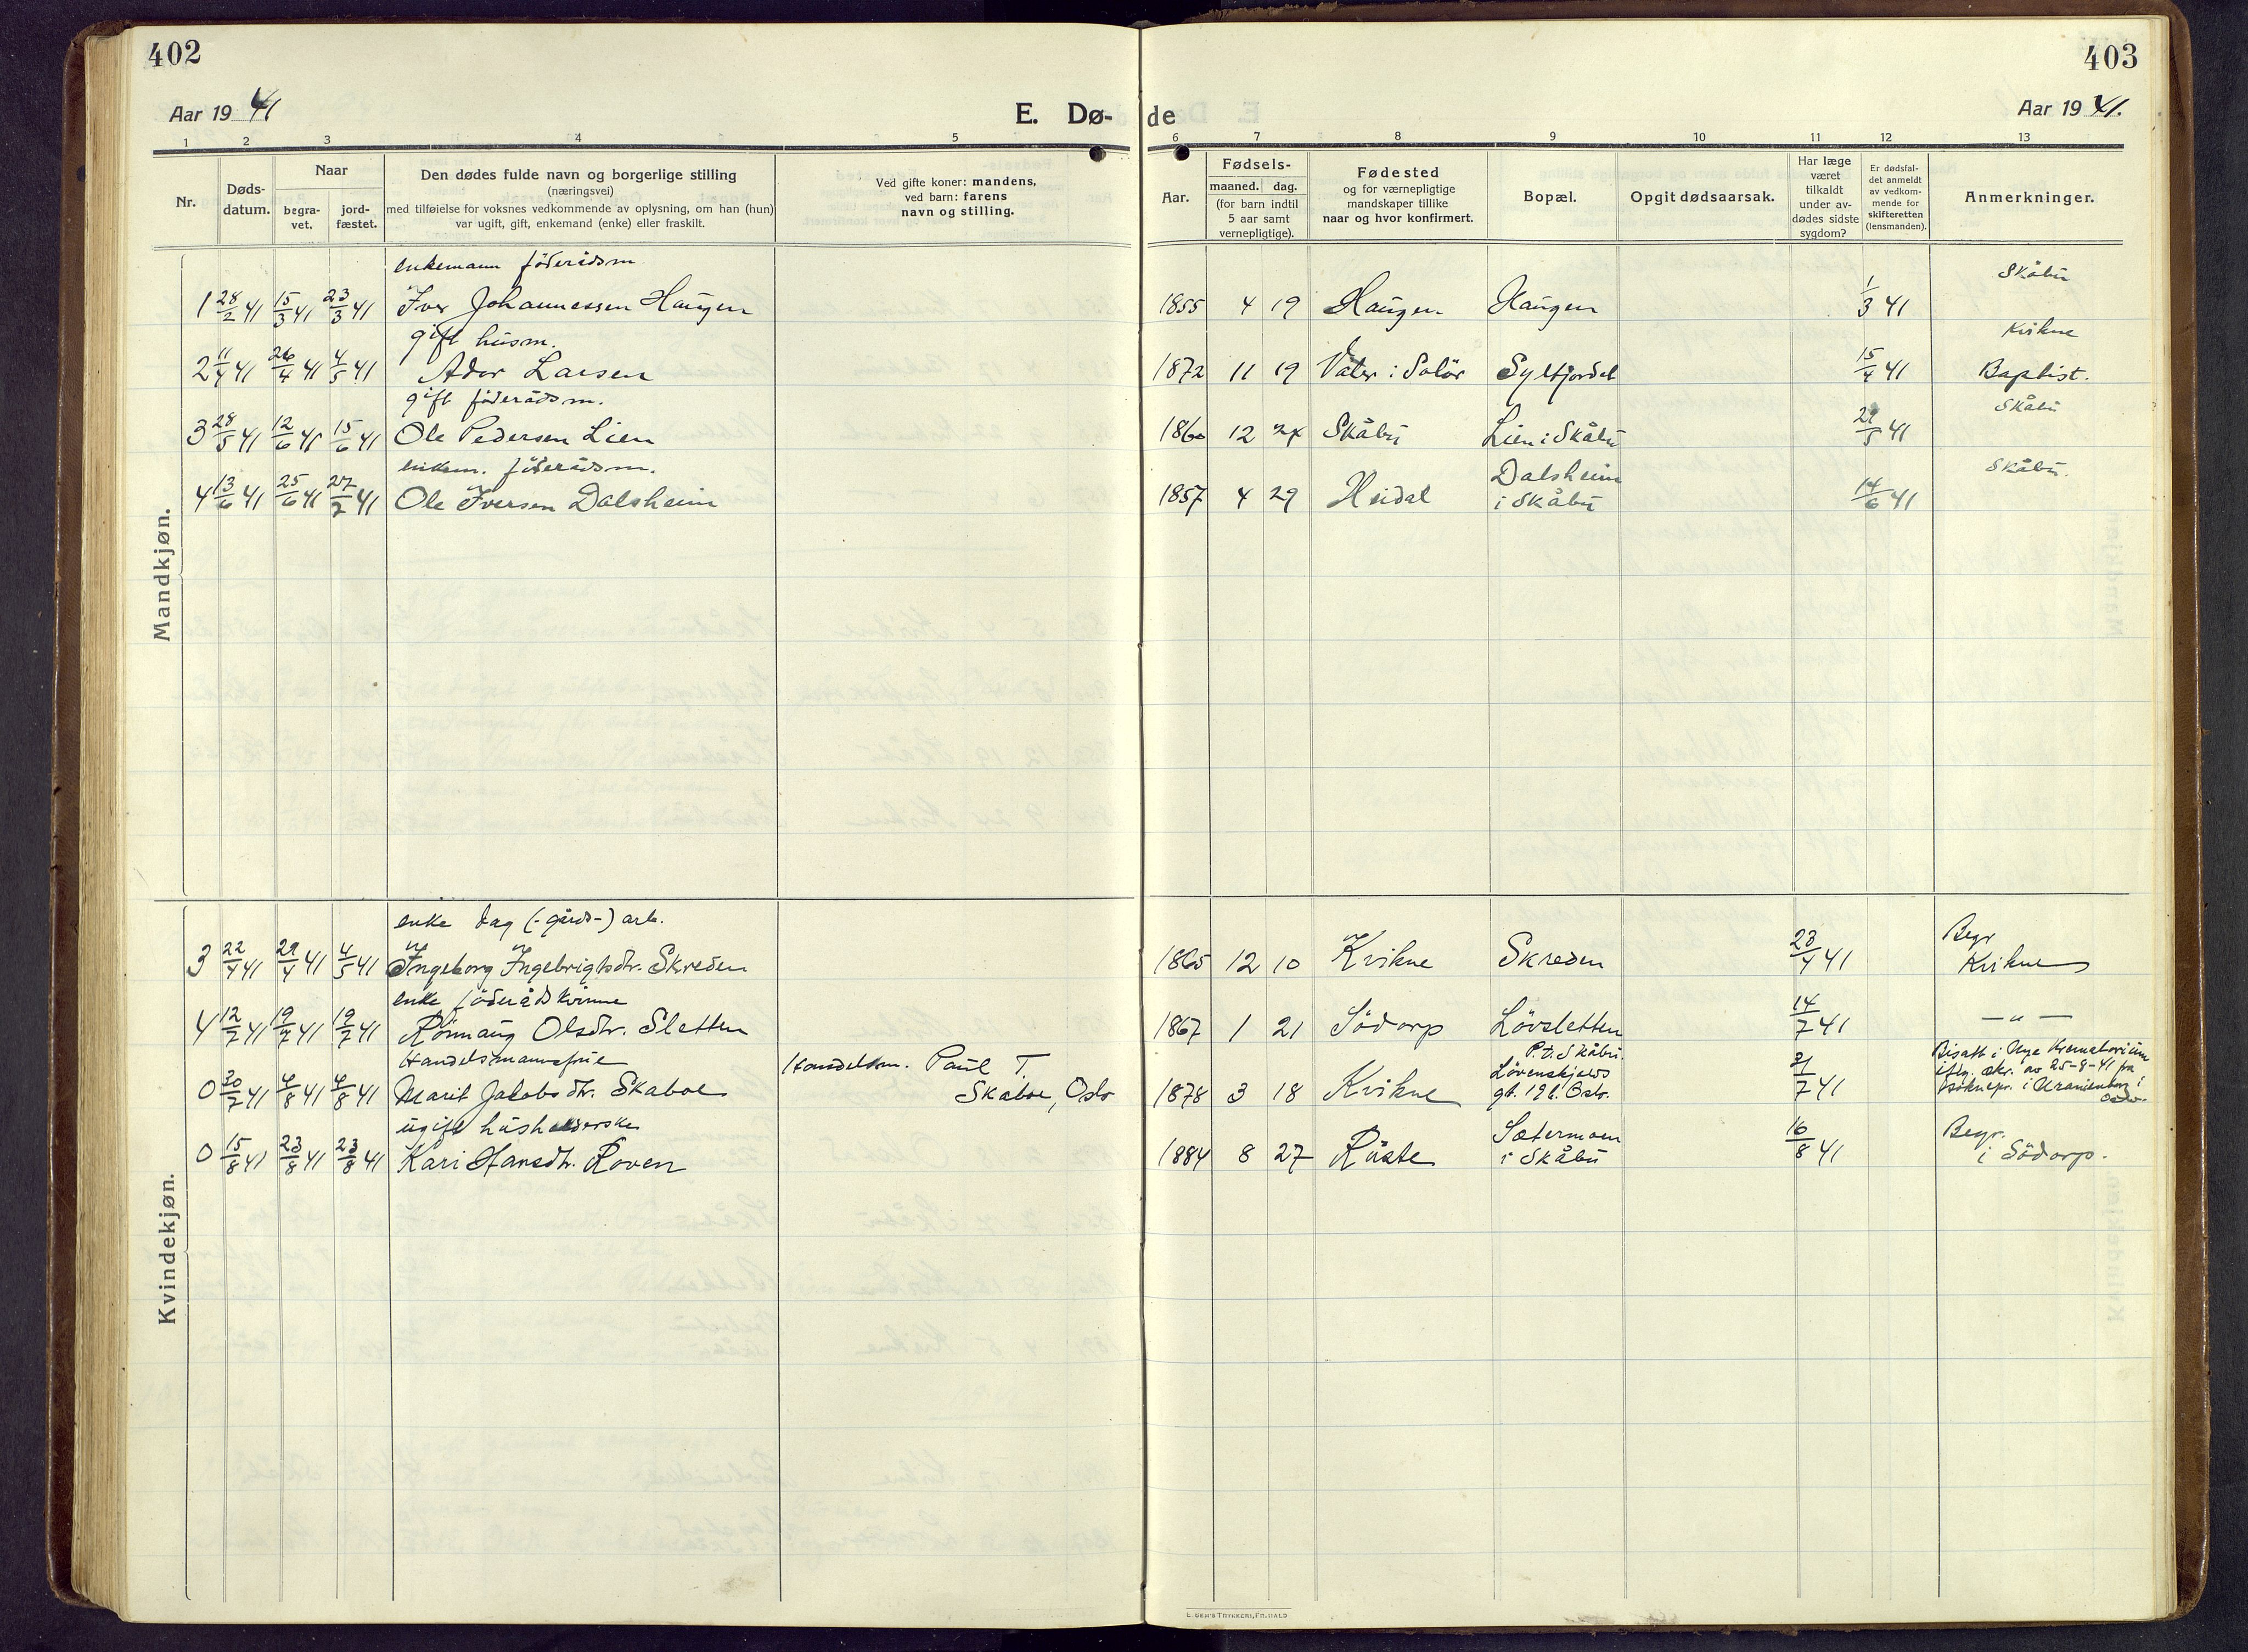 402
403
Aar 1941
E. Dø-
de
Aar 1941.
1 2 3 4 5 6 7 8 9 10 11 12 13
Nr.
Døds-
datum.
Naar
begra-
vet.
jord-
fæstet.
Den dødes fulde navn og borgerlige stilling
(næringsvei)
med tilføielse for voksnes vedkommende av oplysning, om han (hun)
var ugift, gift, enkemand (enke) eller fraskilt.
Ved gifte koner: mandens,
ved barn: farens
navn og stilling.
Aar.
Fødsels-
maaned. dag.
(for barn indtil
5 aar samt
vernepligtige).
Fødested
og for værnepligtige
mandskaper tillike
naar og hvor konfirmert.
Bopæl.
Opgit dødsaarsak.
Har læge
været
tilkaldt
under av-
dødes sidste
sygdom?
Er dødsfal-
det anmeldt
av vedkom-
mende for
skifteretten
(lensmanden).
Anmerkninger.
Mandkjøn.
enkemann föderådsm Skåbu
1 28/2 41 15/3 41 23/3 41 Iver Johannessen Haugen 1855 4 19 Haugen Haugen 1/3 41
gift husm. Kvikne
2 11/4 41 26/4 41 4/5 41 Ador Larsen 1872 11 19 Våler i Solör Syltfjordet 15/4 41 Baptist.
gift föderådsm. Skåbu
3 28/5 41 12/6 41 15/6 41 Ole Pedersen Lien 1860 12 24 Skåbu Lien i Skåbu 29/5 41
enkem. föderådsm. Dalsheim Skåbu.
4 13/6 41 25/6 41 27/7 41 Ole Iversen Dalsheim 1857 4 29 Heidal i Skåbu 14/6 41
Kvindekjøn.
enke dag (-gårds-) arb. Begr
3 22/4 41 29/4 41 4/5 41 Ingeborg Ingebrigtsdtr. Skreden 1865 12 10 Kvikne Skreden 23/4 41 Kvikne
enke föderådskvinne
4 12/7 41 19/7 41 19/7 41 Rönnaug Olsdtr. Sletten 1867 1 21 Södorp Lövsletten 14/7 41 — " —
Handelsmannsfrue Handelsm. Paul T. P.t. Skåbu. Bisatt i Nye Krematorium
Lövenskjolds iflg. skr. av 25-8-41 fra
0 30/7 41 4/8 41 4/8 41 Marit Jakobsdtr. Skaboe Skaboe, Oslo 1878 3 18 Kvikne gt. 19 b. Oslo. 31/7 41 soknepr. i Uranienborg i
Oslo.
ugift husholderske Sætermoen Begr.
0 15/8 41 23/8 41 23/8 41 Kari Hansdtr. Roven 1884 8 27 Ruste i Skåbu 16/8 41 i Södorp.